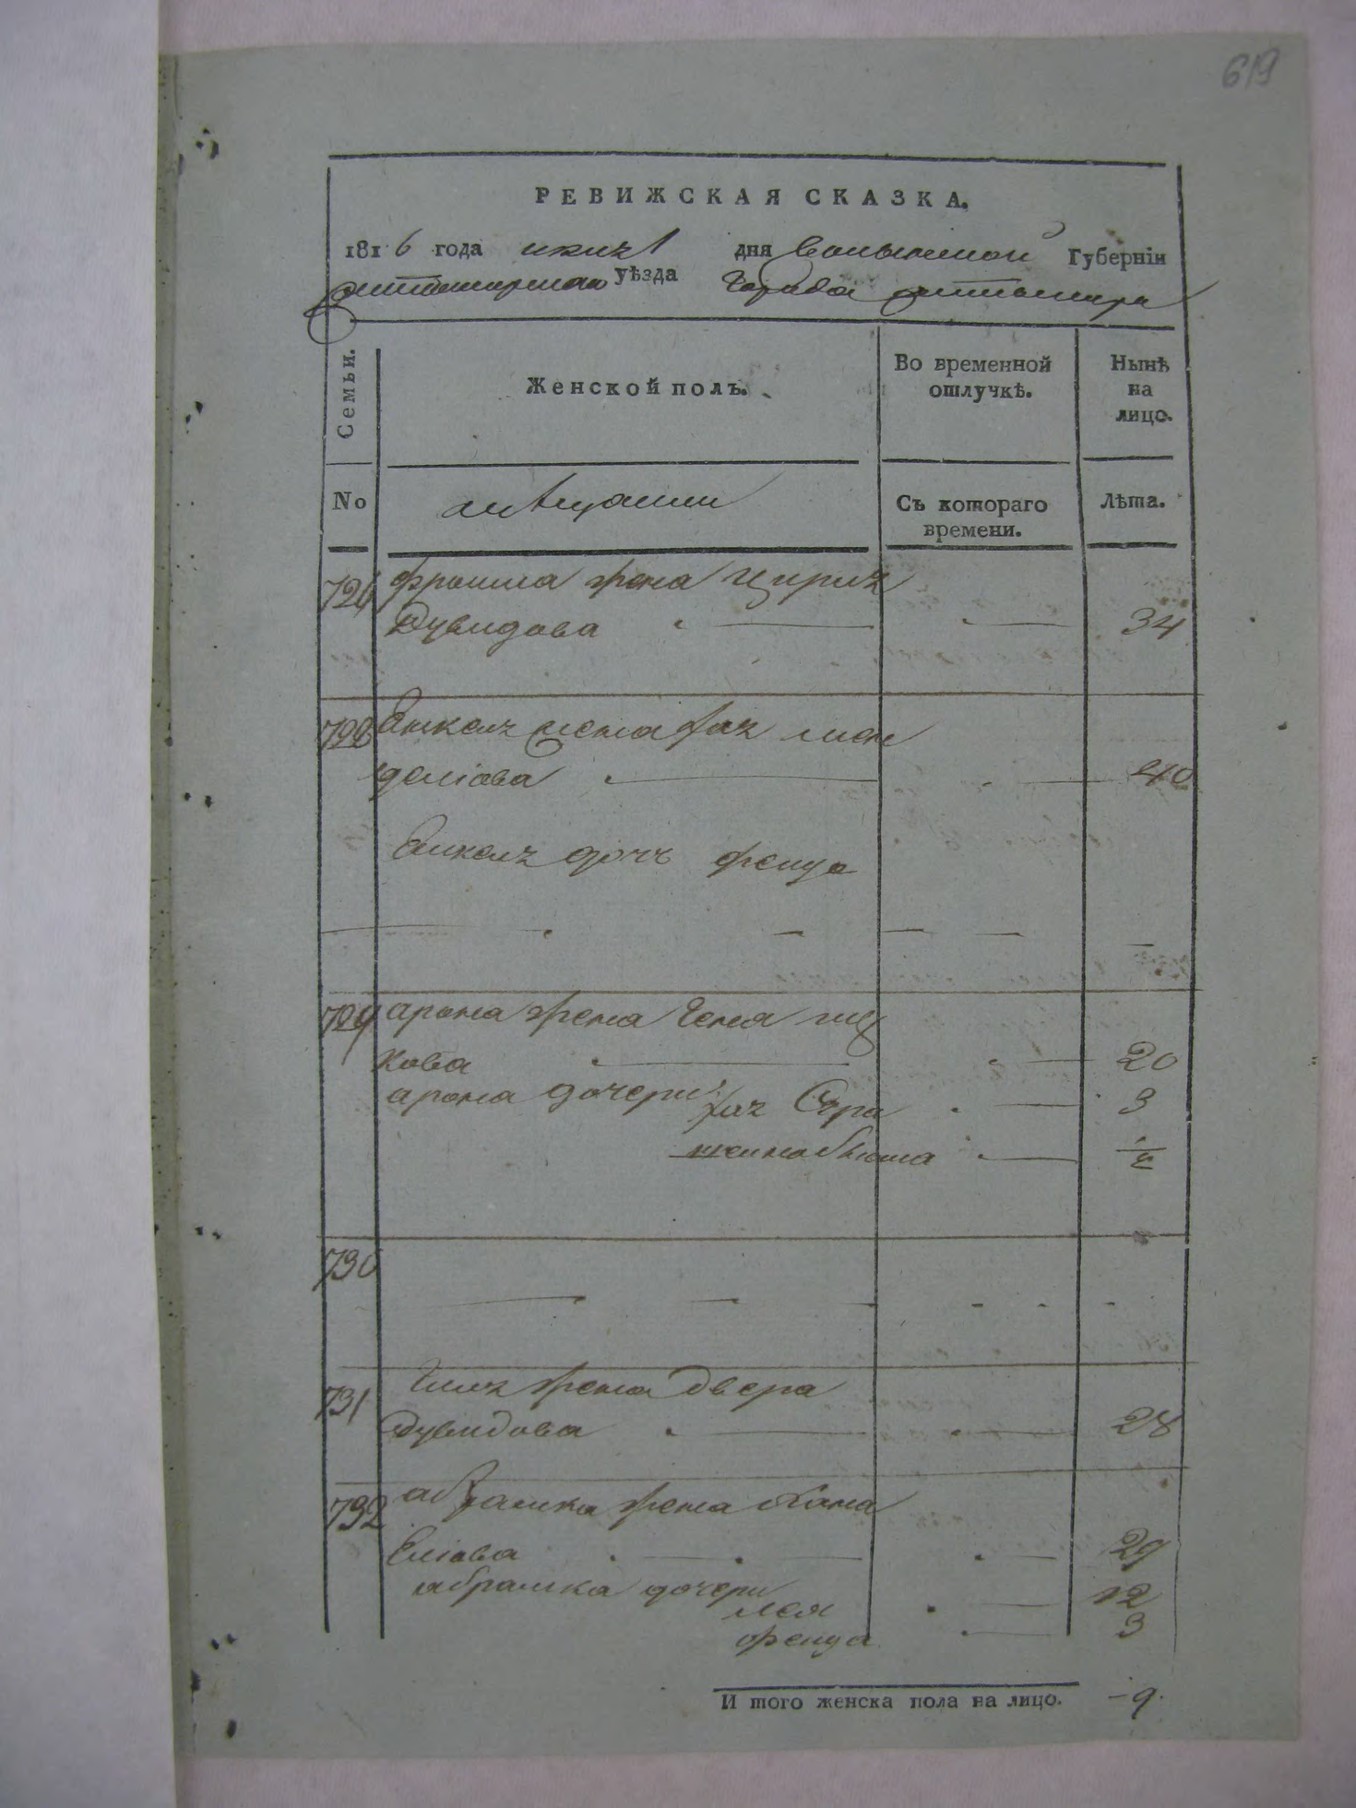 619
РЕВИЖСКАЯ СКАЗКА.
1816 года июня 1 дня Волынской Губерніи
Житомирскаго уѣзда Города Житомира
Семьи. Женской полъ. Во временной отлучкѣ. Нынѣ на лицо.
No мѣщании Съ котораго времени. Лѣта.
Фроима жена Ципра
Дувидова 34
728
деліова 40
дочь Фейга
729 арона жена Геня Иц
кова 20
арона дочери Сура 3
1/2
730
731 жена Двера
Дувидова 28
732 абрамка жена Хана
Еліова 29
абрамка дочери
Лея 12
Фейга 3
И того женска пола на лицо. 9.